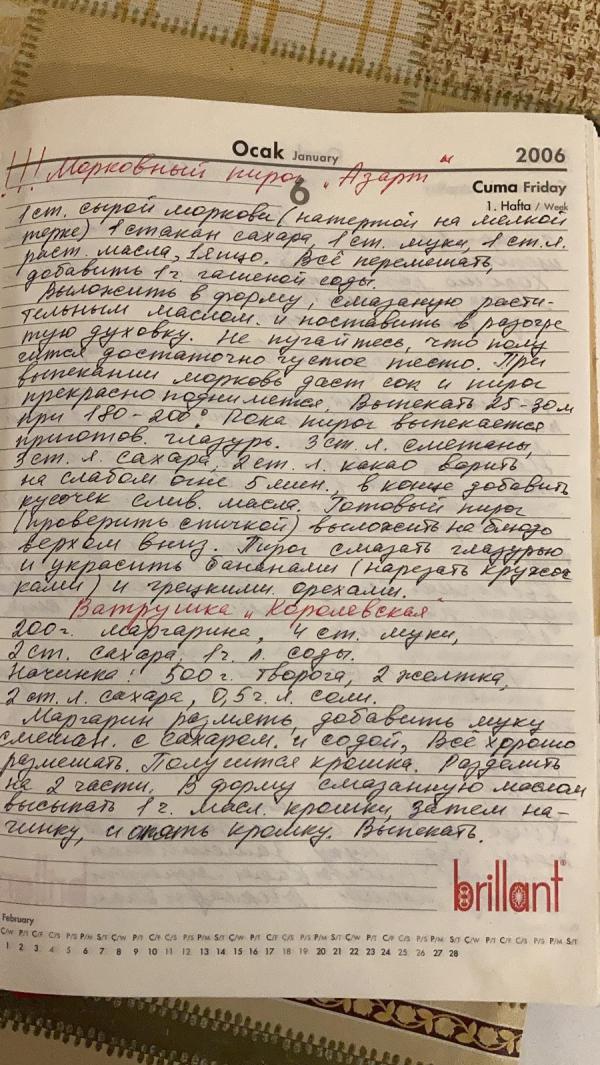 Ocak January 2006
!!! Морковный пирог „Азарт“
6 Cuma Friday
1. Hafta / Week
1 ст. сырой моркови (натертой на мелкой
терке) 1 стакан сахара, 1 ст. муки, 1 ст.л.
раст. масла, 1 яйцо. Всё перемешать,
добавить 1 ч гашеной соды.
Выложить в форму, смазаную расти-
тельным маслом. и поставить в разогре
тую духовку. Не пугайтесь, что полу
чится достаточно густое тесто. При
выпекании морковь даст сок и пирог
прекрасно поднимется. Выпекать 25-30 м
при 180-200°. Пока пирог выпекается
приготов. глазурь. 3 ст. л. сметаны,
3 ст. л. сахара, 2 ст. л. какао варить
на слабом огне 5 мин., в конце добавить
кусочек слив. масла. Готовый пирог
(проверить спичкой) выложить на блюдо
верхом вниз. Пирог смазать глазурью
и украсить бананами (нарезать кружоч
ками) и грецкими орехами.
Ватрушка „Королевская“
200 г. маргарина, 4 ст. муки,
2 ст. сахара, 1 ч. л. соды.
Начинка: 500 г. творога, 2 желтка,
2 ст. л. сахара, 0,5 ч. л. соли.
Маргарин размять, добавить муку
смешан. с сахаром. и содой, Всё хорошо
размешать. Получится крошка. Разделить
на 2 части. В форму смазанную маслом
высыпать 1 ч. масл. крошки, затем на-
чинку, и опять крошку. Выпекать.
brillant
February
C/W P/T C/F C/S P/S P/M S/T C/W P/T C/F C/S P/S P/M S/T C/W P/T C/F C/S P/S P/M S/T C/W P/T C/F C/S P/S P/M S/T C/W P/T C/F C/S P/S P/M S/T
1 2 3 4 5 6 7 8 9 10 11 12 13 14 15 16 17 18 19 20 21 22 23 24 25 26 27 28